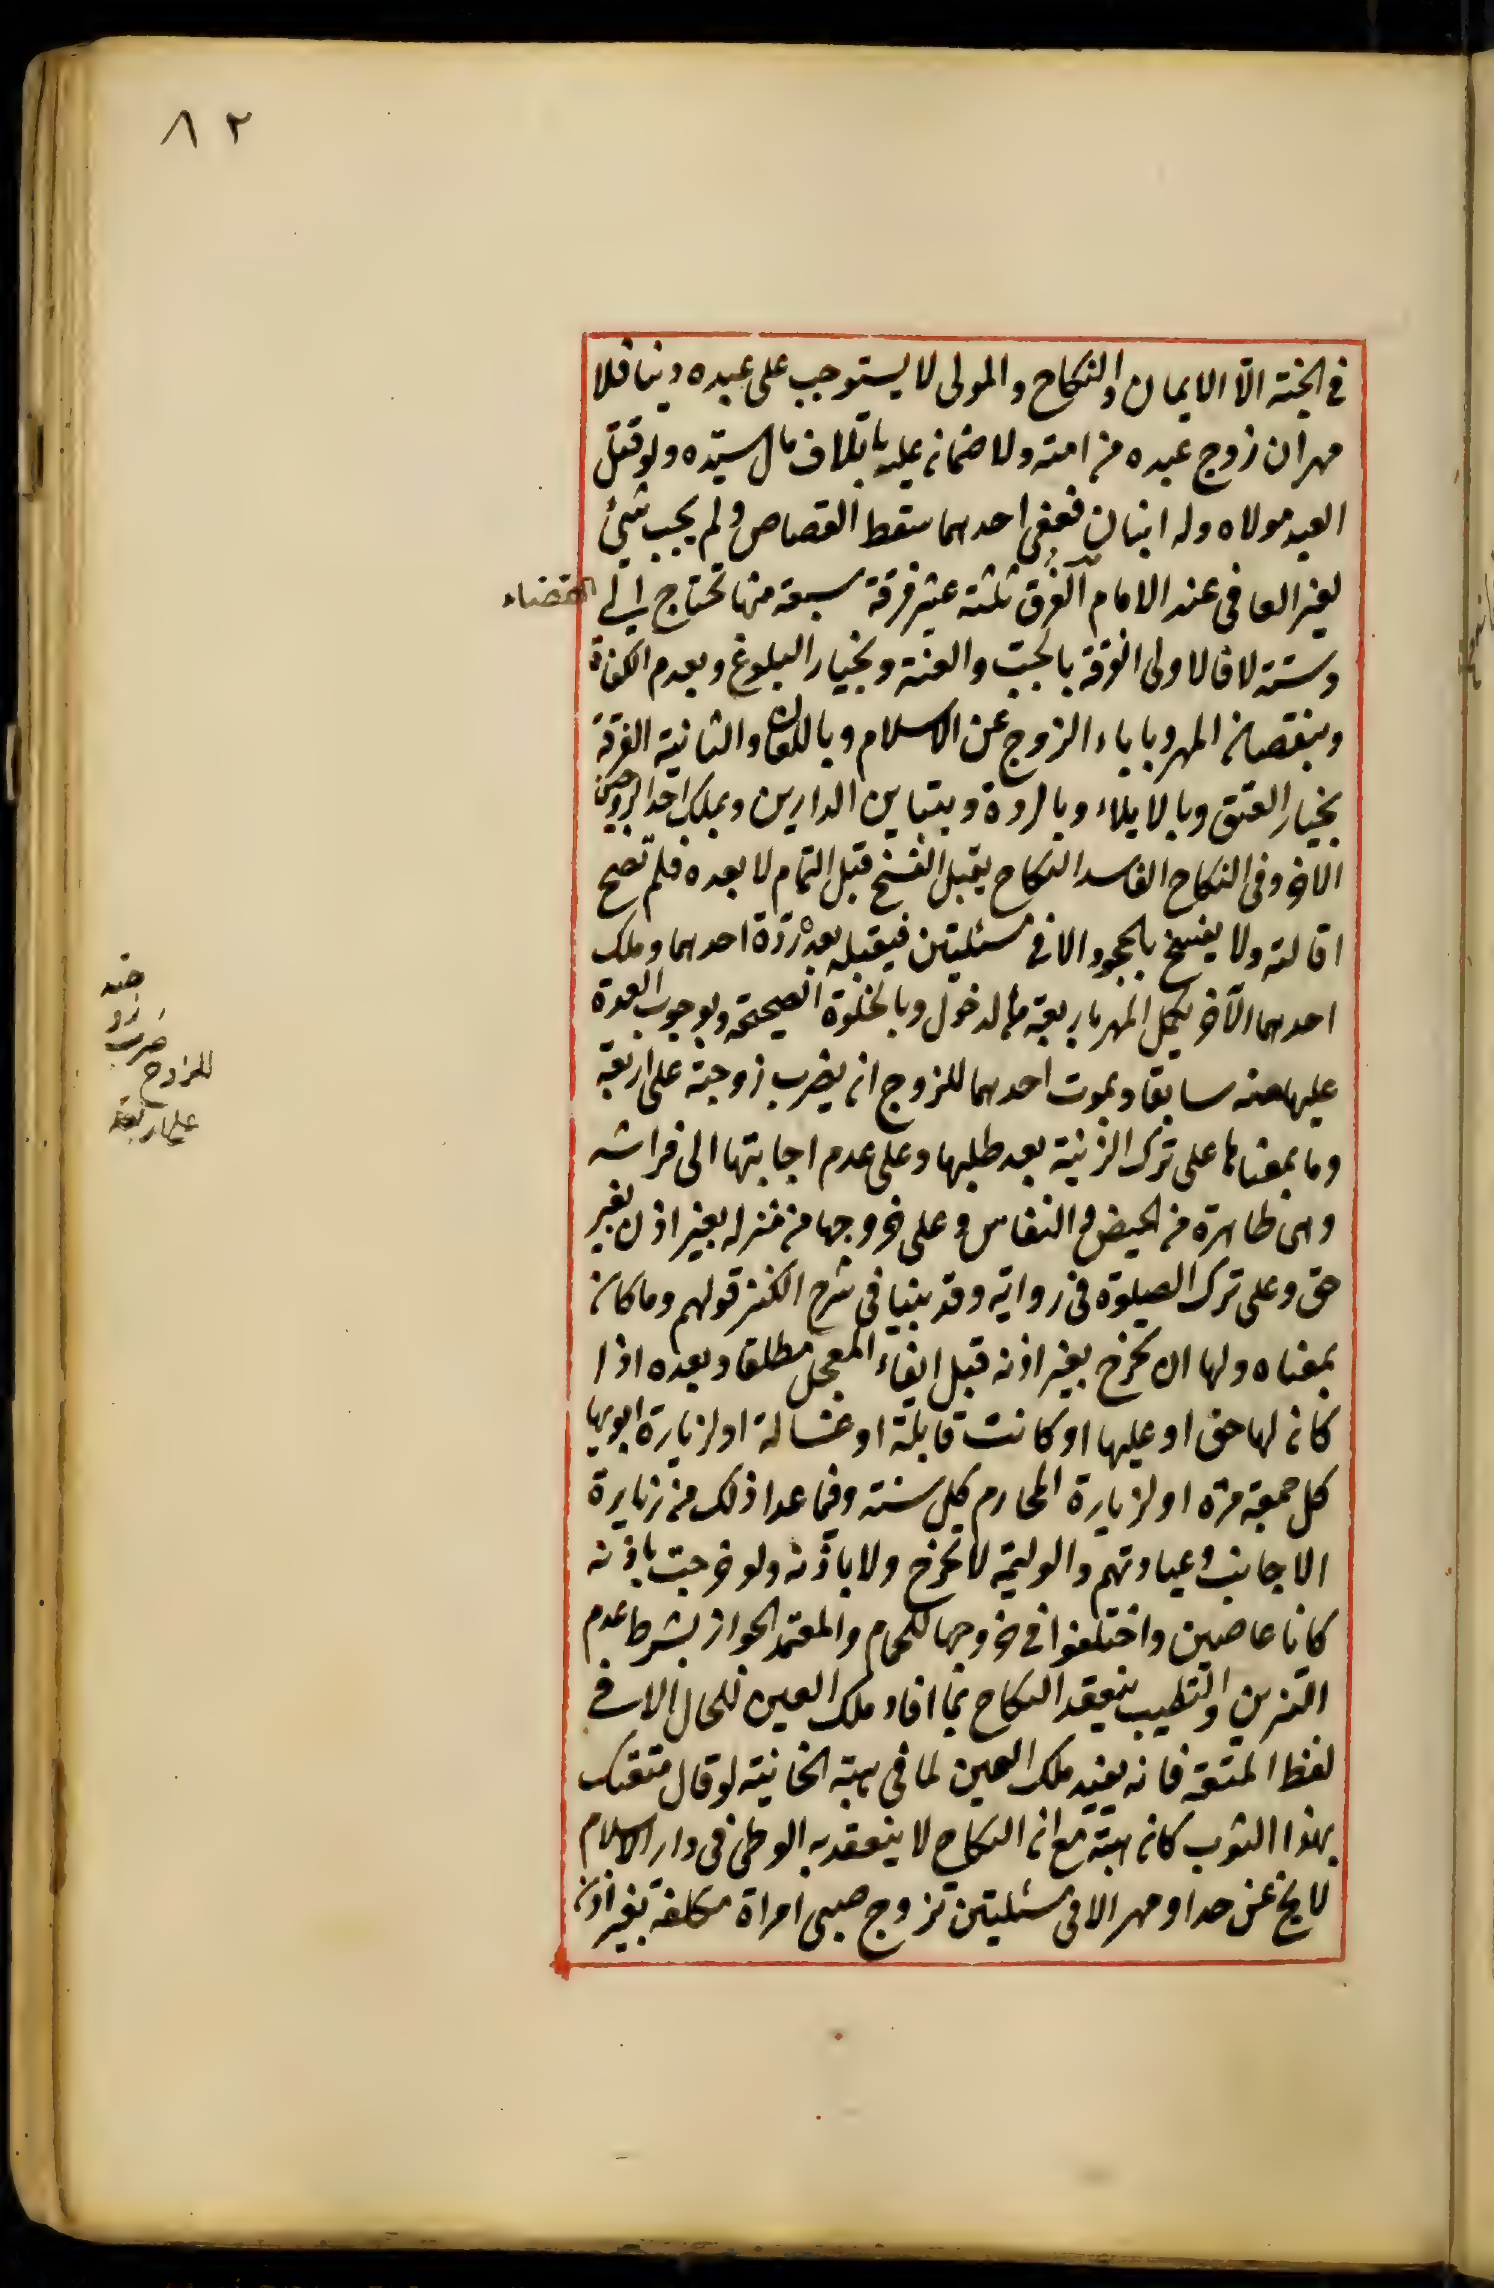 ٨٢
في الجنة الا الايمان والنكاح والمولى لا يستوجب على عبده دينا فلا
مهر ان زوج عبده من امته ولا ضمان عليه باتلاف مال سيّده ولو قتل
العبد مولاه وله ابنان فعفى احدهما سقط القصاص ولم يجب شئ
لغير العافى عند الامام الفُرق ثلثة عشر فرقة سبعة منها تحتاج الى القضاء
وستة لا فالاولى الفرقة بالجبّ والعنة وبخيار البلوغ وبعدم الكفاة
وبنقصان المهر وباباء الزوج عن الاسلام وباللعان والثانية الفرقة
بخيار العتق وبالايلاء وبالردة وبتباين الدارين وبملك احد الزوجين
الاخر وفى النكاح الفاسد النكاح يقبل الفسخ قبل التمام لا بعده فلم تصح
اقالته ولا يفسخ بالجحود الا في مسئلتين فيقبله بعد ردة احدهما وملك
احدهما الآخر يكمل المهر باربعة بالدخول وبالخلوة الصحيحة وبوجوب العدة
عليها منه سابقا وبموت احدهما للزوج ان يضرب زوجته على اربعة
وما بمعناها على ترك الزينة بعد طلبها وعلى عدم اجابتها الى فراشه
وهى طاهرة من الحيض والنفاس وعلى خروجها من منزله بغير اذن بغير
حق وعلى ترك الصلوة فى رواية وقد بينا في شرح الكنز قولهم وما كان
بمعناه ولها ان تخرج بغير اذنه قبل ايفاء المعجل مطلقا وبعده اذا
كان لها حق او عليها او كانت قابلة او غسالة او لزيارة ابويها
كل جمعة مرة او لزيارة المحارم كل سنة وفيما عدا ذلك من زيارة
الاجانب وعيادتهم والوليمة لا تخرج ولا باذنه ولو خرجت باذنه
كانا عاصيين واختلفوا في خروجها للحمام والمعتمد الجواز بشرط عدم
التزين والتطيب ينعقد النكاح بما افاد ملك العين للحال الا في
لفظ المتعة فانه يفيد ملك العين لما في هبة الخانية لو قال متعتك
بهذا الثوب كان هبة مع ان النكاح لا ينعقد به الوطئ فى دار الاسلام
لا يخ عن حد او مهر الا في مسئلتين تزوج صبى امراة مكلفة بغير اذن
ضرب
للزوج
على اربعة